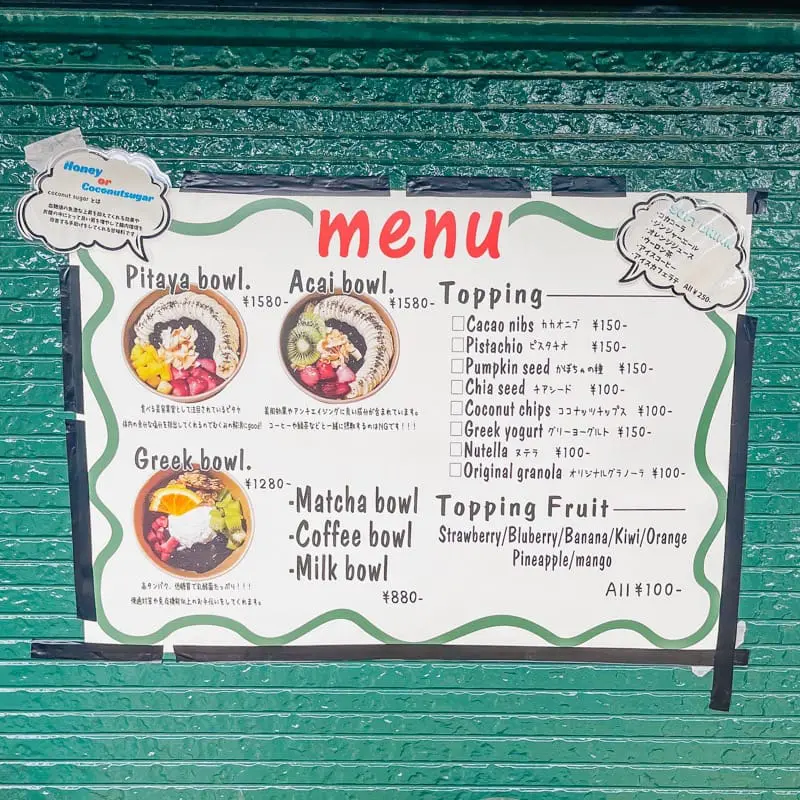 Honey
or
Coconutsugar
coconut sugar とは
血糖値の急激な上昇を抑えてくれる効果や
お腹の中にとって良い菌を増やして腸内環境を
改善する手助けをしてくれる甘味料です
menu
コカコーラ
ジンジャーエール
オレンジジュース
ウーロン茶
アイスコーヒー
アイスカフェラテ
All ¥250-
Pitaya bowl.
¥1580-
Acai bowl.
¥1580-
食べる美容液として注目されているピタヤ
体内の余分な塩分を排出してくれるのでむくみの解消にgood!
美肌効果やアンチエイジングに良い成分が含まれています。
コーヒーや緑茶などと一緒に摂取するのはNGです！！！
Greek bowl.
¥1280-
高タンパク、低糖質で乳酸菌たっぷり！！！
便通対策や免疫機能向上のお手伝いをしてくれます。
-Matcha bowl
-Coffee bowl
-Milk bowl
¥880-
Topping
Cacao nibs カカオニブ ¥150-
Pistachio ピスタチオ ¥150-
Pumpkin seed かぼちゃの種 ¥150-
Chia seed チアシード ¥100-
Coconut chips ココナッツチップス ¥100-
Greek yogurt グリーヨーグルト ¥150-
Nutella ヌテラ ¥100-
Original granola オリジナルグラノーラ ¥100-
Topping Fruit
Strawberry/Bluberry/Banana/Kiwi/Orange
Pineapple/mango
All ¥100-